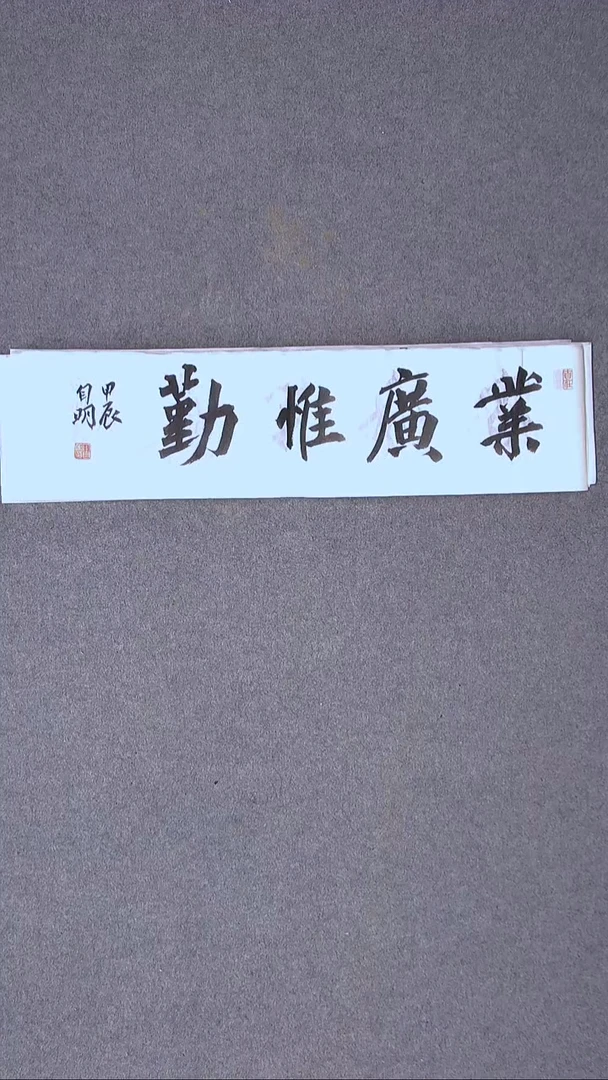 業廣惟勤
甲辰
自明